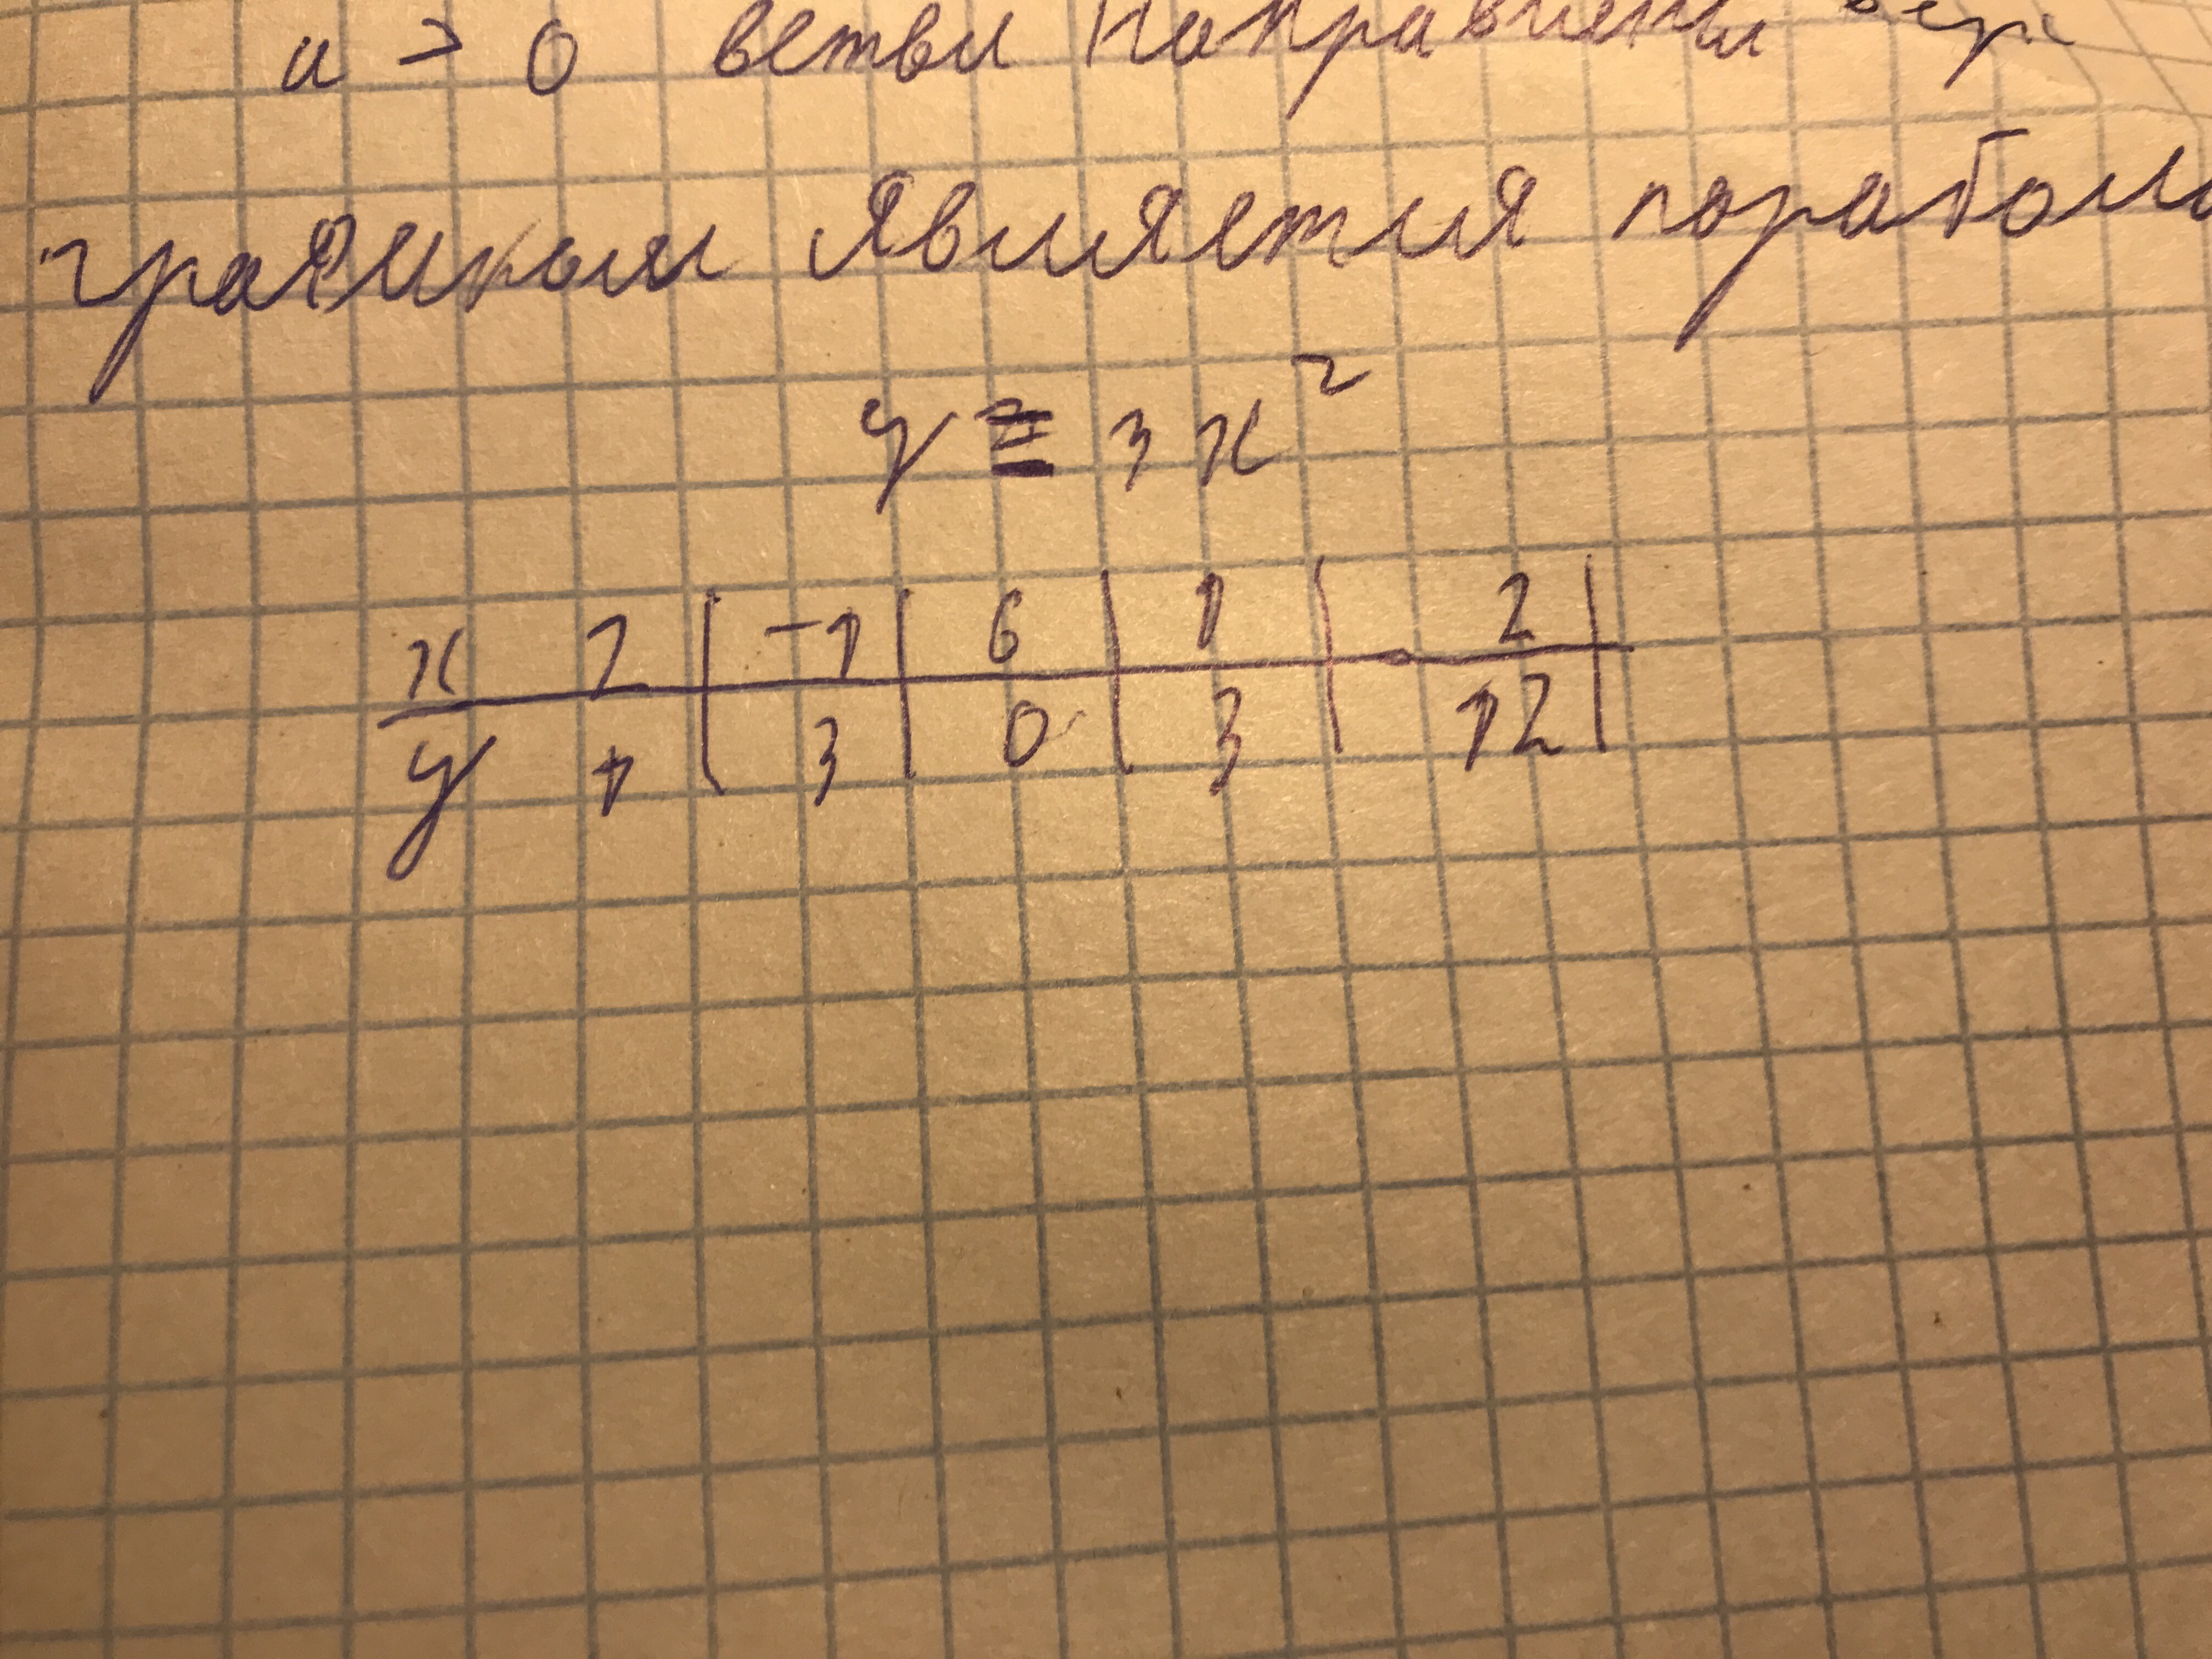 a > 0 ветви направлены верх
графиком является парабола
y = 3x²
x 2 | -1 | 0 | 1 | 2 |
y 4 | 3 | 0 | 3 | 12 |